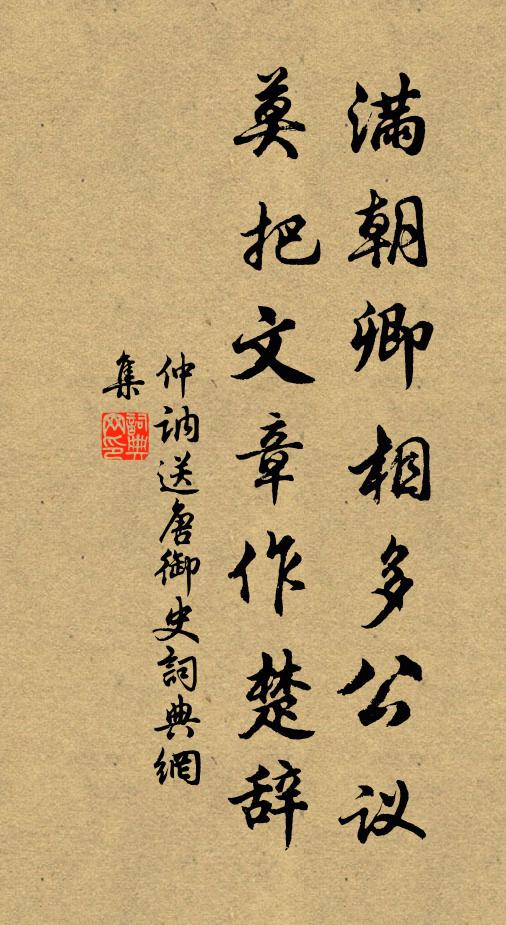 满朝卿相多公议
莫把文章作楚辞
仲讷送唐御史詞典網
集
詞典网印